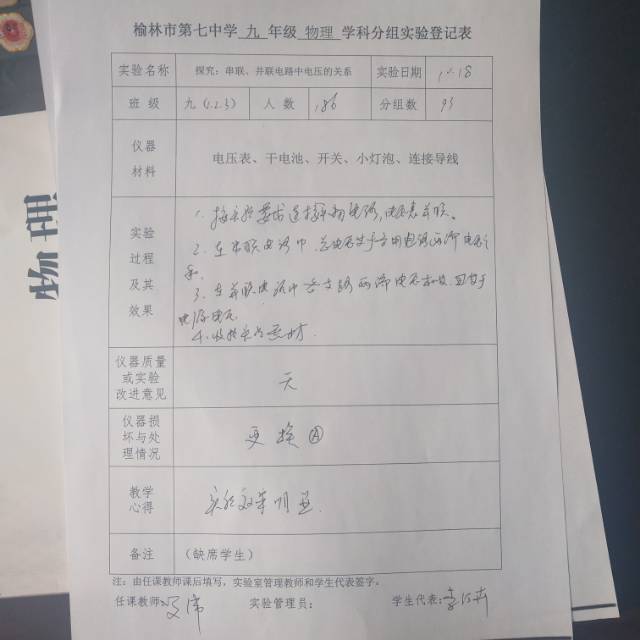 榆林市第七中学 九 年级 物理 学科分组实验登记表
实验名称 探究：串联、并联电路中电压的关系 实验日期
班 级 九（1.2.3） 人 数 186 分组数 93
仪器材料 电压表、干电池、开关、小灯泡、连接导线
实验过程及其效果
1. 按实验要求连接
2. 在串联电路中，总电压等于各用电器两端电压之
和。
3. 在并联电路中各支路两端电压相等，且等于
电源电压
4. 收拾
仪器质量或实验改进意见 无
仪器损坏与处理情况 更换Ⓐ
教学心得 实验效果明显
备注 （缺席学生）
注：由任课教师课后填写，实验室管理教师和学生代表签字。
任课教师： 实验管理员： 学生代表：
物理